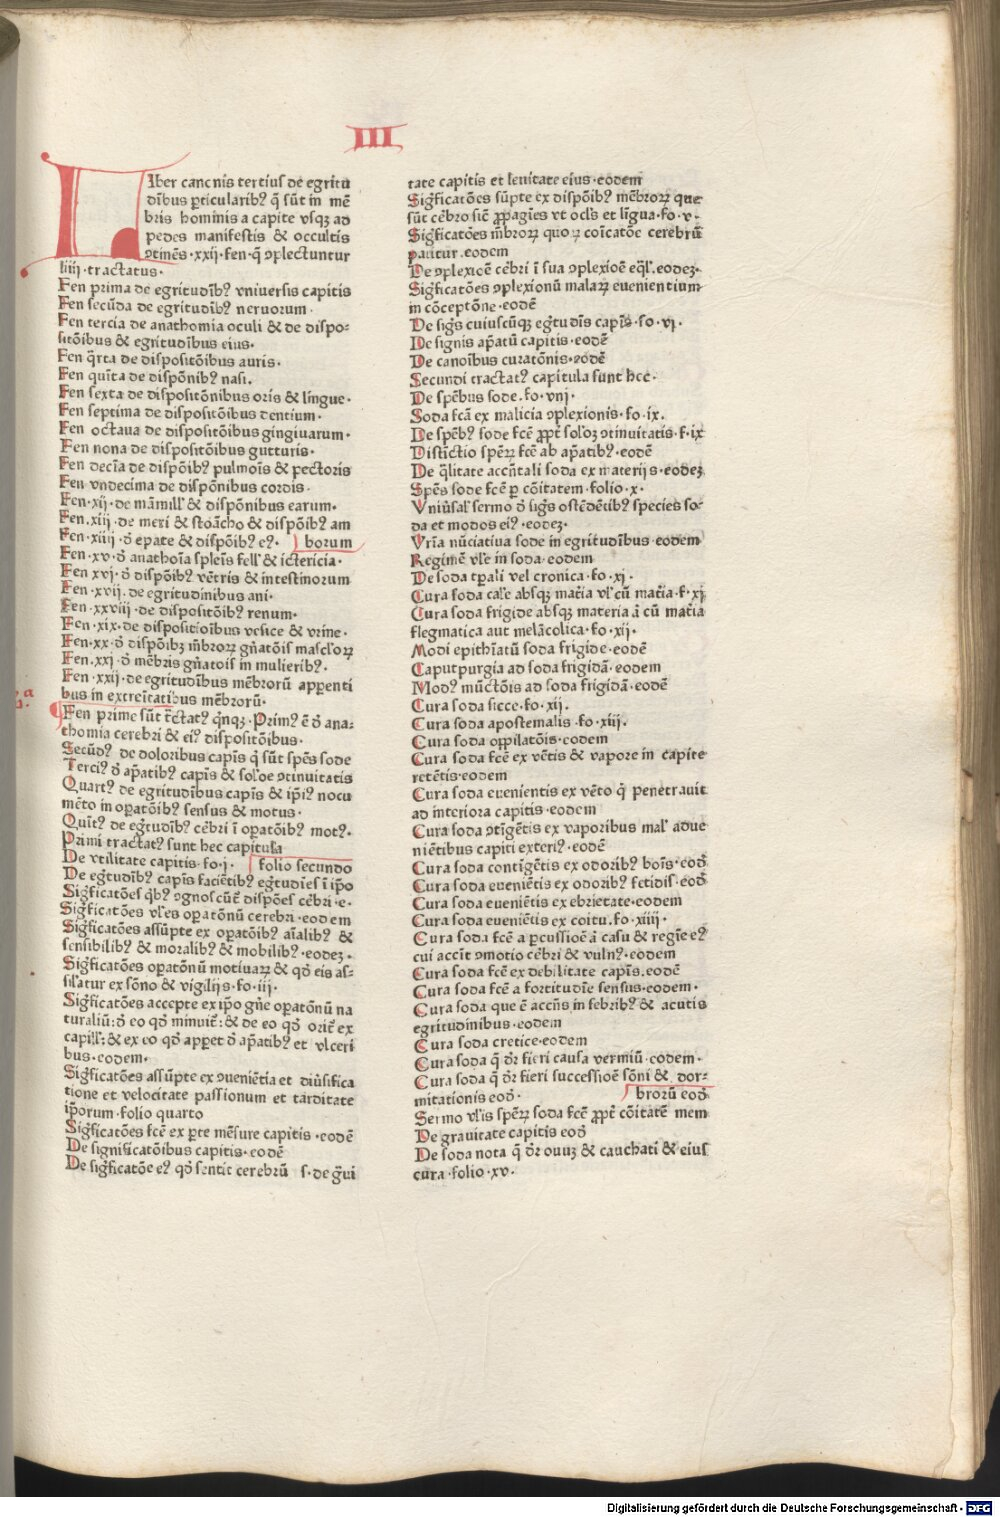 III
Liber canonis tertius de egritu
dībus ꝑticularibꝰ q̄ sūt in mē
bris hominis a capite vsqꝫ ad
pedes manifestis & occultis
ↄtinēs .xxij. fen. q̄ ↄplectuntur
liiij. tractatus.
Fen prima de egritudībꝰ vniuersis capitis
Fen secūda de egritudībꝰ neruorum.
Fen tercia de anathomia oculi & de dispo-
sitōibus & egritudībus eius.
Fen q̄rta de dispositōibus auris.
Fen quīta de dispōnibꝰ nasi.
Fen sexta de dispositōnibus oris & līngue.
Fen septima de dispositōibus dentium.
Fen octaua de dispositōibus gingiuarum.
Fen nona de dispositōibus gutturis.
Fen decīa de dispōibꝰ pulmoīs & pectoris
Fen vndecima de dispōnibus cordis.
Fen .xij. de māmillꝭ & dispōnibus earum.
Fen .xiij. de meri & stoācho & dispōibꝰ am
Fen .xiiij. ð epate & dispōibꝰ eꝰ. borum
Fen .xv. ð anathoīa spleīs fellꝭ & ictericia.
Fen xvj. ð dispōibꝰ vētris & intestinorum
Fen .xvij. de egritudinibus ani.
Fen .xxviij. de dispositōibꝰ renum.
Fen .xix. de dispositioībus vesice & vrine.
Fen .xx. ð dispōibꝫ mb̄roꝝ gn̄atōis masclōꝝ
Fen .xxj. ð mēbris gn̄atōis in mulieribꝰ.
Fen .xxij. de egritudībus mēbrorū apparenti
bus in extreītatibus mēbrorū.
Fen prime sūt tractatꝰ q̄nqꝫ. Primꝰ ē ð ana-
thomia cerebri & eiꝰ dispositōibus.
Secūdꝰ de doloribus capīs q̄ sūt spēs sode
Terciꝰ ð apātibꝰ capīs & solōe ↄtinuitatis
Quartꝰ de egritudībus capīs & ip̄iꝰ nocu
mēto in oꝑatōibꝰ sensus & motus.
Quītꝰ de egtudībꝰ cēbri ī oꝑatōibꝰ motꝰ.
Primi tractatꝰ sunt hec capitula
De vtilitate capitis. fo. j. folio secundo
De egtudībꝰ capīs faciētibꝰ egtudīes ī ip̄o
Sigficatōes qͥbꝰ ↄgnoscūt dispōes cēbri. e.
Sigficatōes vl̄es oꝑatōnū cerebri. eodem
Sigficatōes assūpte ex oꝑatōibꝰ aīalibꝰ &
sensibilibꝰ & moralibꝰ & mobilibꝰ. eodeꝫ.
Sigficatōes oꝑatōnū motiuaꝝ & qð eis as-
sil̄atur ex sōno & vigilijs. fo. iij.
Sigficatōes accepte ex ip̄o gn̄e oꝑatōnū na
turaliū: ð eo qð minuit̄: & de eo qð orit̄ ex
capillꝭ: & ex eo qð apꝑet ð apātibꝰ et vlceri
bus. eodem.
Sigficatōes assūpte ex ↄueniētia et diūsifica
tione et velocitate passionum et tarditate
ip̄orum. folio quarto
Sigficatōes fcē ex ꝑte mēsure capitis. eodē
De significatōibus capitis. eodē
De sigficatōe eꝰ qð sentit cerebrū s. de gͣui
tate capitis et leuitate eius. eodem
Sigficatōes sūpte ex dispōibꝰ mēbroꝝ que
sūt cēbro sic̄ ꝓpagīes vt ocl̄s et līgua. fo. v.
Sigficatōes mb̄roꝝ quoꝝ cōicatōe cerebrū
patitur. eodem
De ↄplexioē cēbri ī sua ↄplexioē eql̄. eodeꝫ.
Sigficatōes ↄplexionū malaꝝ euenientium
in cōceptōne. eodē
De sigs cuiuscūqꝫ egtudīs capīs. fo. vj.
De signis apātū capitis. eodē
De canoībus curatōnis. eodē
Secundi tractatꝰ capitula sunt hec.
De spēbus sode. fo. viij.
Soda fcā ex malicia ↄplexionis. fo. ix.
De spēbꝰ sode fcē ꝓpt̄ solōꝫ ↄtinuitatis. f. ix
Distīctio speꝝ fcē ab apātibꝰ. eodē
De qͣlitate accn̄tali soda ex materijs. eodeꝫ
Spēs sode fcē ꝑ cōitatem. folio. x.
Vniūsal̄ sermo ð sigs ostēdētibꝰ species so-
da et modos eiꝰ. eodeꝫ.
Vrīa nūciatiua sode in egritudībus. eodem
Regimē vl̄e in soda. eodem
De soda tꝑali vel cronica. fo. xj.
Cura soda cal̄e absqꝫ mat̄ia vl̄ cū mat̄ia. f. xj
Cura soda frigide absqꝫ materia ā cū mat̄ia
flegmatica aut melācolica. fo. xij.
Modi epithīatū soda frigide. eodē
Caputpurgia ad soda frigidā. eodem
Modꝰ mūctōis ad soda frigidā. eodē
Cura soda sicce. fo. xij.
Cura soda apostemalis. fo. xiij.
Cura soda opꝑilatōis. eodem
Cura soda fcē ex vētis & vapore in capite
retētis. eodem
Cura soda euenientis ex vēto q̄ penetrauit
ad interiora capitis. eodem
Cura soda ↄtīgētis ex vaporibus malꝭ adue
niētibus capiti exteriꝰ. eodē
Cura soda contīgētis ex odoribꝰ boīs. eoð
Cura soda eueniētis ex odoribꝰ fetidis. eoð
Cura soda eueniētis ex ebrietate. eodem
Cura soda eueniētis ex coitu. fo. xiiij.
Cura soda fcē a ꝑcussioē ā casu & regīe eꝰ
cui accīt ↄmotio cēbri & vulnꝰ. eodem
Cura soda fcē ex debilitate capīs. eodē
Cura soda fcē a fortitudīe sensus. eodem.
Cura soda que ē accn̄s in febribꝰ & acutis
egritudinibus. eodem
Cura soda cretice. eodem
Cura soda q̄ dr̄ fieri causa vermiū. eodem.
Cura soda q̄ dr̄ fieri successioē sōni & dor-
mitationis eoð. brorū eoð
Sermo vl̄is speꝝ soda fcē ꝓpt̄ cōitatē mem
De grauitate capitis eoð
De soda nota q̄ dr̄ ouuꝫ & cauchati & eius
cura. folio. xv.
Digitalisierung gefördert durch die Deutsche Forschungsgemeinschaft - DFG